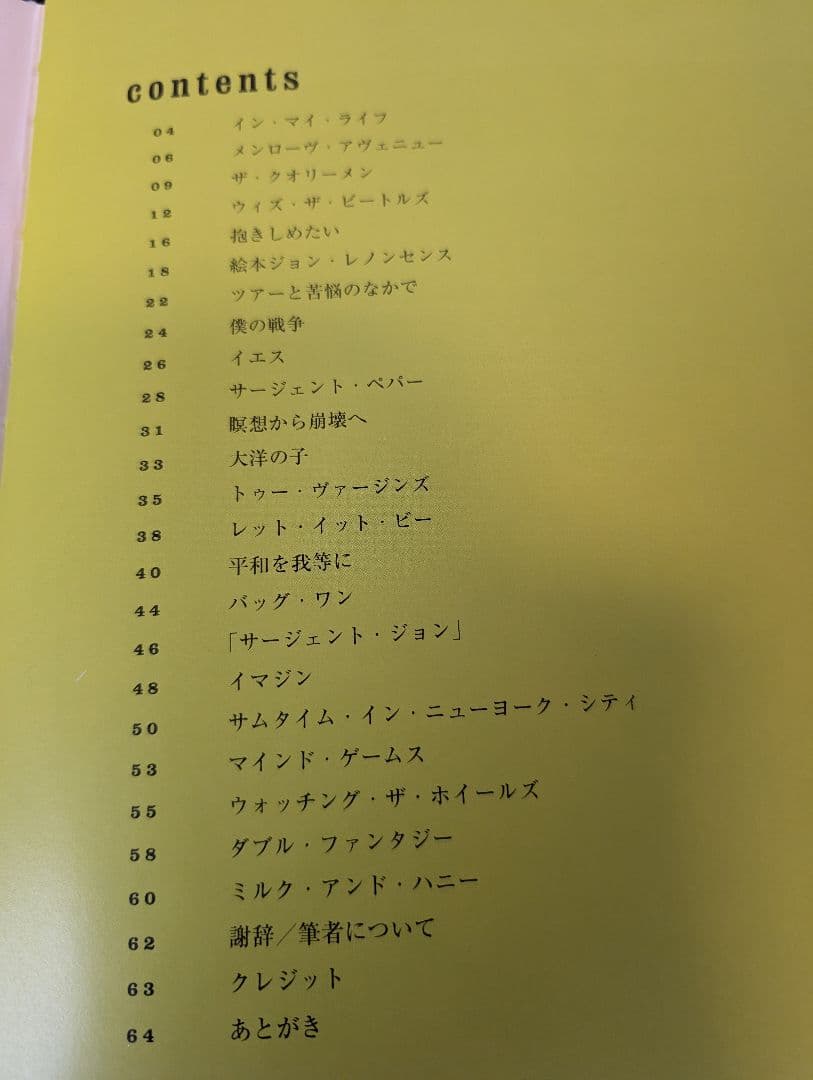 contents
04 イン・マイ・ライフ
06 メンローヴ・アヴェニュー
09 ザ・クオリーメン
12 ウィズ・ザ・ビートルズ
16 抱きしめたい
18 絵本ジョン・レノンセンス
22 ツアーと苦悩のなかで
24 僕の戦争
26 イエス
28 サージェント・ペパー
31 瞑想から崩壊へ
33 大洋の子
35 トゥー・ヴァージンズ
38 レット・イット・ビー
40 平和を我等に
44 バッグ・ワン
46 「サージェント・ジョン」
48 イマジン
50 サムタイム・イン・ニューヨーク・シティ
53 マインド・ゲームス
55 ウォッチング・ザ・ホイールズ
58 ダブル・ファンタジー
60 ミルク・アンド・ハニー
62 謝辞／筆者について
63 クレジット
64 あとがき